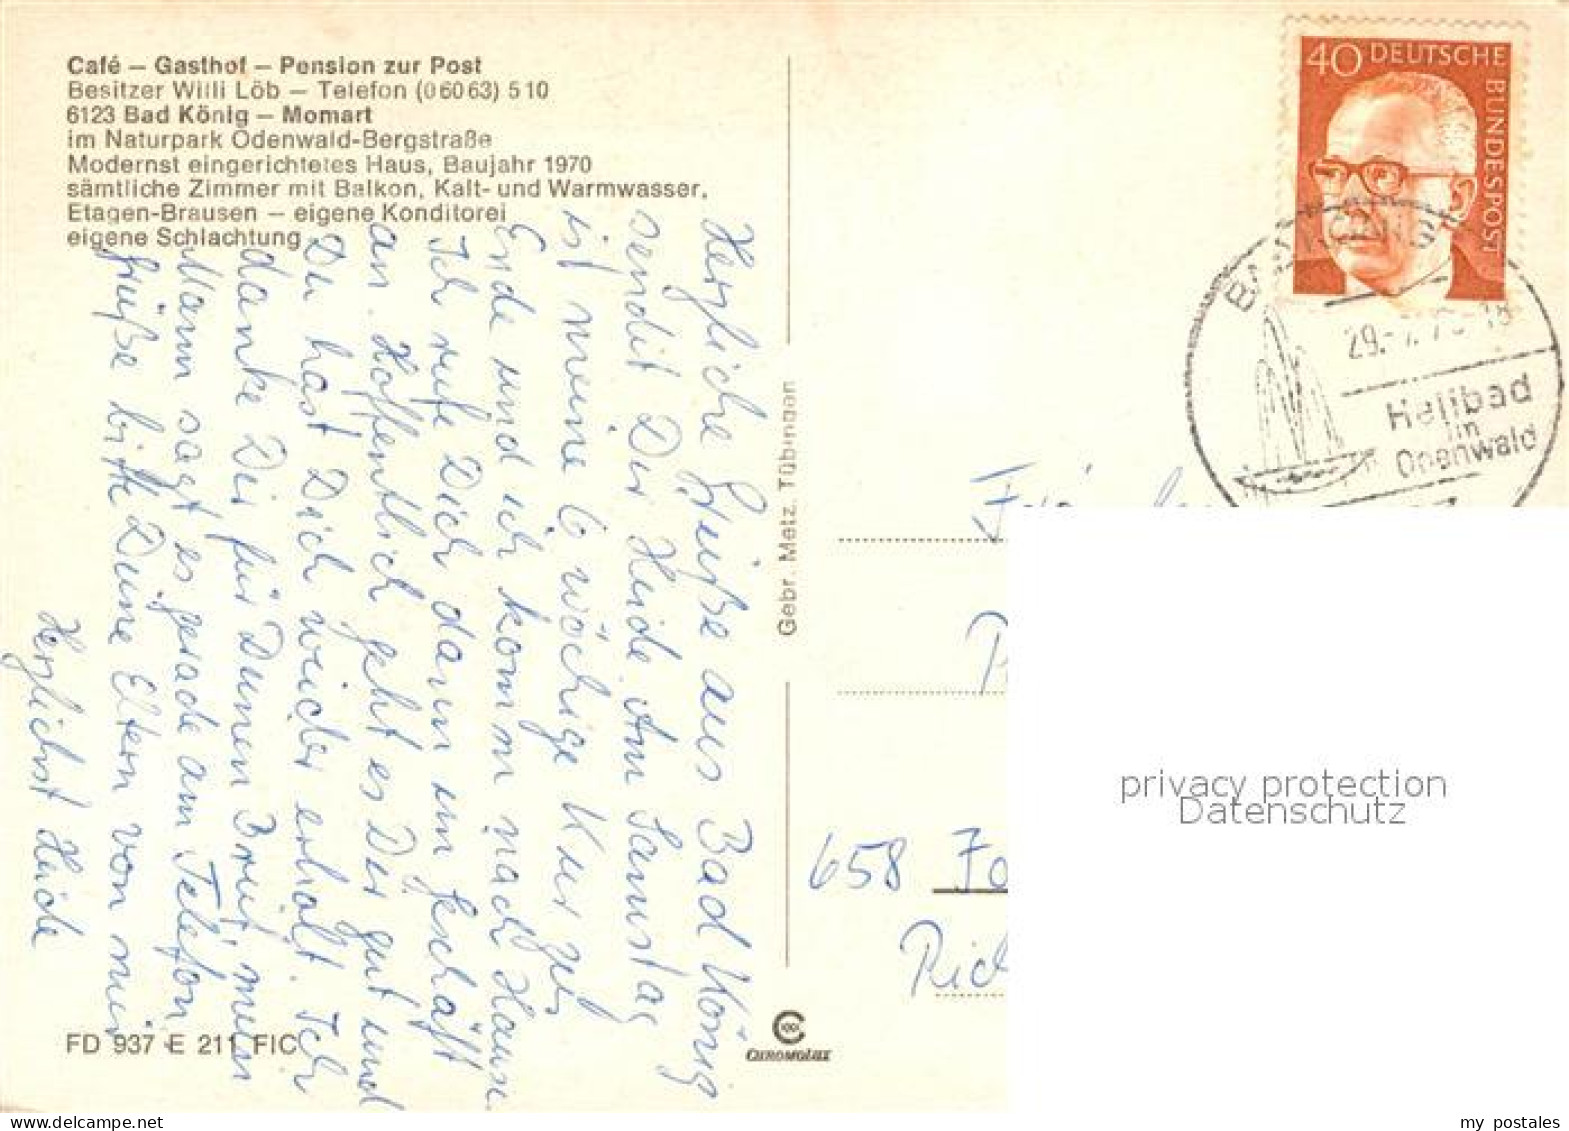 Café – Gasthof – Pension zur Post
Besitzer Willi Löb – Telefon (06063) 510
6123 Bad König – Momart
im Naturpark Odenwald-Bergstraße
Modernst eingerichtetes Haus, Baujahr 1970
sämtliche Zimmer mit Balkon, Kalt- und Warmwasser,
Etagen-Brausen – eigene Konditorei
eigene Schlachtung
Herzliche Grüße aus Bad König
sendet Dir Heide. Am Samstag
ist meine 6 wöchige Kur zu
Ende und ich komm nach Hause.
Ich rufe Dich dann im Geschäft
an. Hoffentlich geht es Dir gut und
Du hast Dich wieder erholt. Ich
danke Dir für Deinen Brief, mein
Mann sagt es gerade am Telefon.
Grüße bitte Deine Eltern von mir
Herzlichst Heide
FD 937 E 211 FIC
Gebr. Metz, Tübingen
CHROMOLUX
40 DEUTSCHE BUNDESPOST
BAD KÖNIG
29.-7.7 -18
Heilbad
im
Odenwald
658
privacy protection
Datenschutz
www.delcampe.net
my_postales